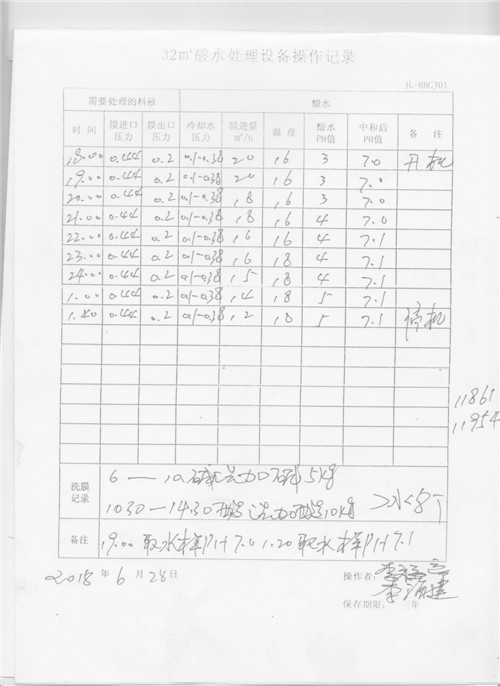 32m²酸水处理设备操作记录
JL-HHCJ01
需要处理的料液 酸水
时间 膜进口压力 膜出口压力 冷却水压力 膜进量m³/h 温度 酸水PH值 中和后PH值 备注
18.00 0.44 0.2 0.1-0.38 20 16 3 7.0 开机
19.00 0.44 0.2 0.1-0.38 20 16 3 7.0
20.00 0.44 0.2 0.1-0.38 18 16 3 7.0
21.00 0.44 0.2 0.1-0.38 18 16 4 7.0
22.00 0.44 0.2 0.1-0.38 16 16 4 7.1
23.00 0.44 0.2 0.1-0.38 16 18 4 7.1
24.00 0.44 0.2 0.1-0.38 15 18 4 7.1
1.00 0.44 0.2 0.1-0.38 14 18 5 7.1
1.20 0.44 0.2 0.1-0.38 12 18 5 7.1 停机
11861
11954
洗膜记录
6 — 10 碱洗加碱5kg
1030-14.30 酸洗加酸10kg
备注 19.00取水样PH7.0 1.20取水样PH7.1
2018年6月28日
操作者：李
李
保存期限：三年